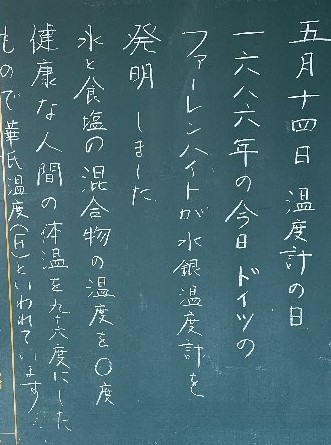 五月十四日 温度計の日
一六八六年の今日ドイツの
ファーレンハイトが水銀温度計を
発明しました
水と食塩の混合物の温度を〇度
健康な人間の体温を九十六度にした
もので華氏温度(F)といわれています